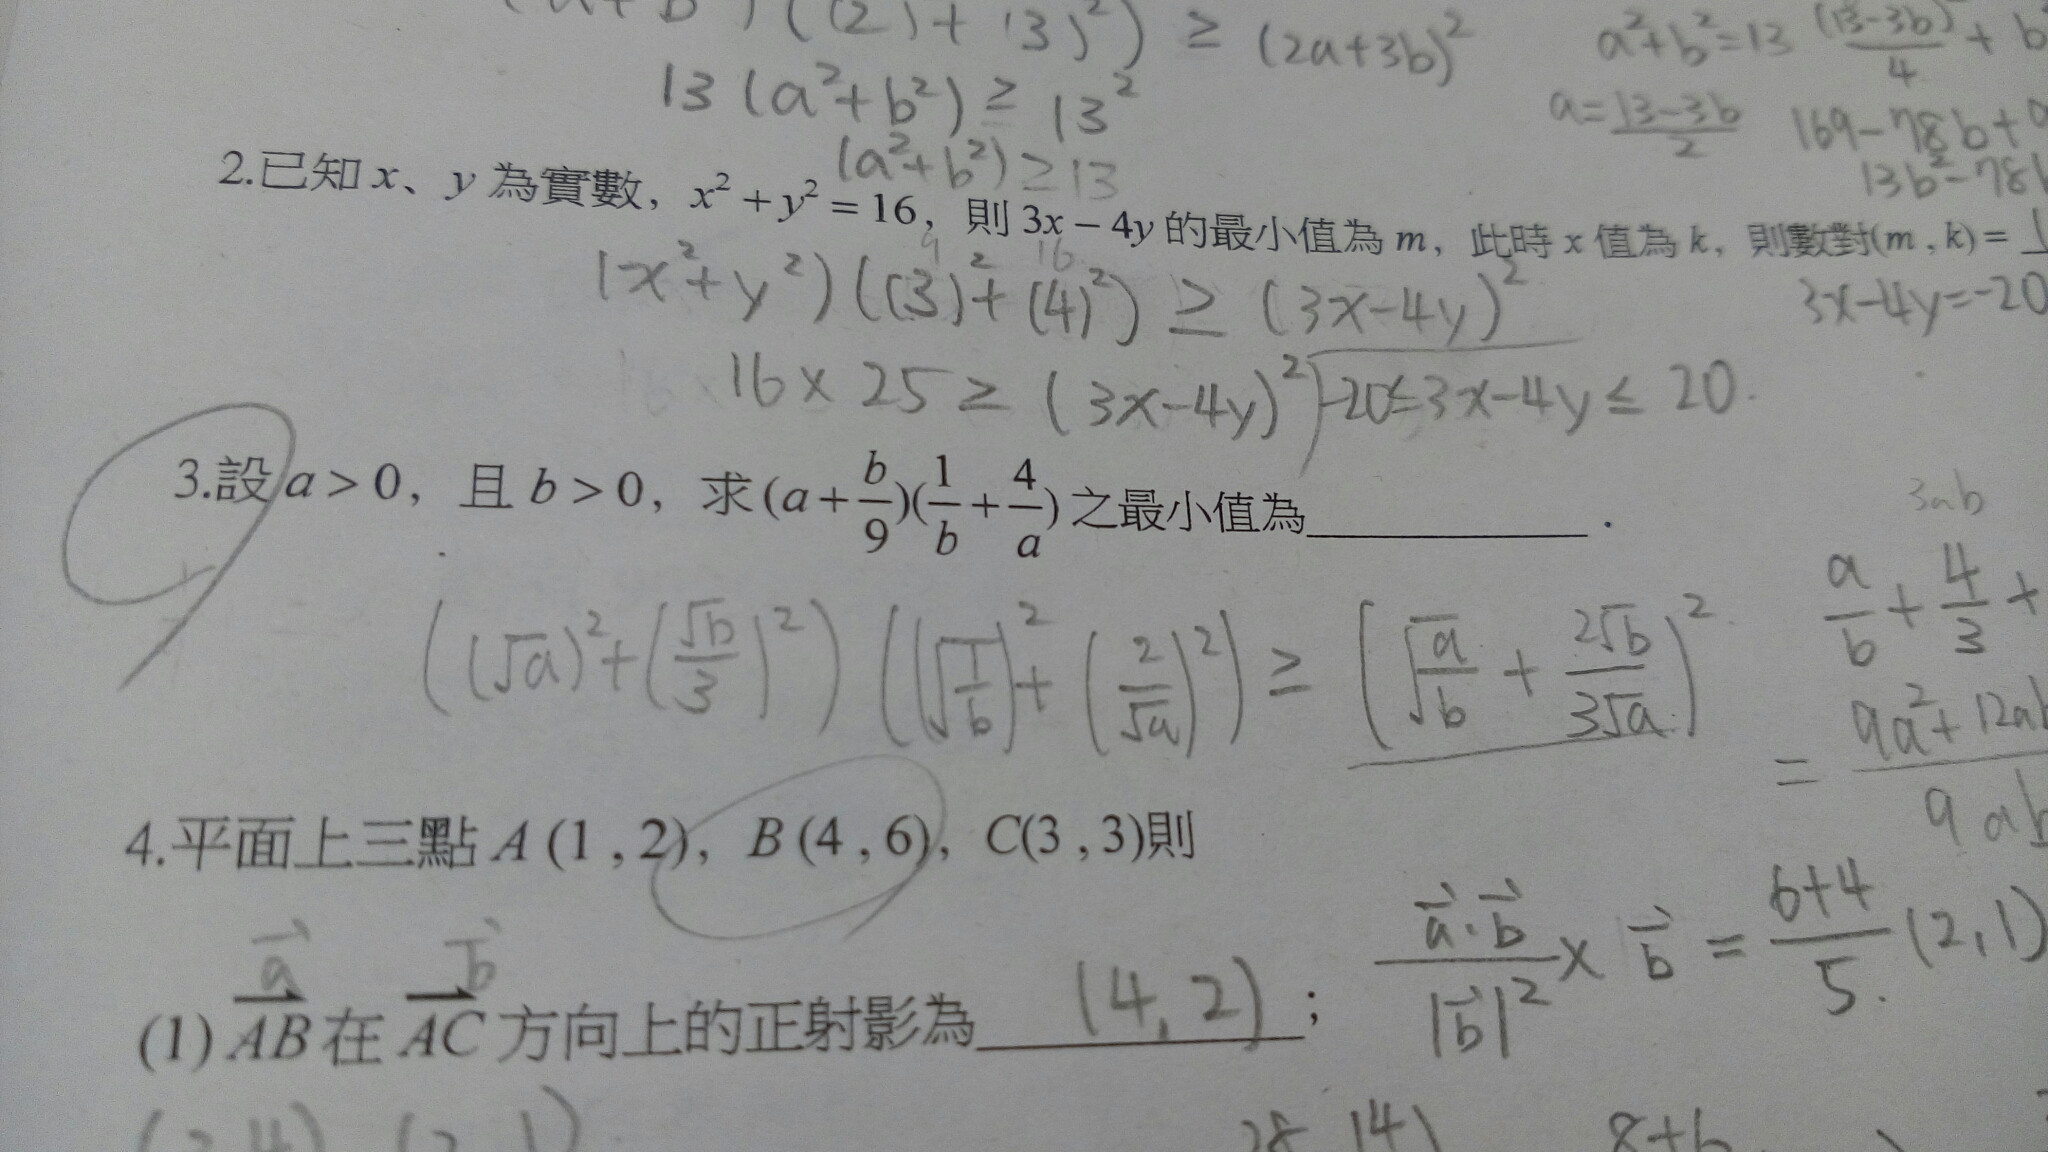 ((2)²+(3)²) ≥ (2a+3b)²
a²+b²=13
13(a²+b²) ≥ 13²
a=\frac{13-3b}{2} 169-78b+
(a²+b²)≥13
13b²-78b
2.已知 x、y 為實數，x²+y²=16，則 3x-4y 的最小值為 m，此時 x 值為 k，則數對(m,k)=
9 16
(x²+y²)((3)²+(4)²) ≥ (3x-4y)²
3x-4y=-20
16×25 ≥ (3x-4y)² -20≤3x-4y≤20.
3.設 a>0，且 b>0，求(a+\frac{b}{9})(\frac{1}{b}+\frac{4}{a})之最小值為____________.
3ab
((√a)²+(\frac{√b}{3})²)((√\frac{1}{b})²+(\frac{2}{√a})²) ≥ (√\frac{a}{b}+\frac{2√b}{3√a})²
\frac{a}{b}+\frac{4}{3}+
=\frac{9a²+12ab}{9ab}
4.平面上三點 A(1,2)，B(4,6)，C(3,3)則
\vec{a} \vec{b}
\frac{\vec{a}·\vec{b}}{|\vec{b}|²}×\vec{b}=\frac{6+4}{5}(2,1)
(1) \vec{AB} 在 \vec{AC} 方向上的正射影為 (4,2) ;